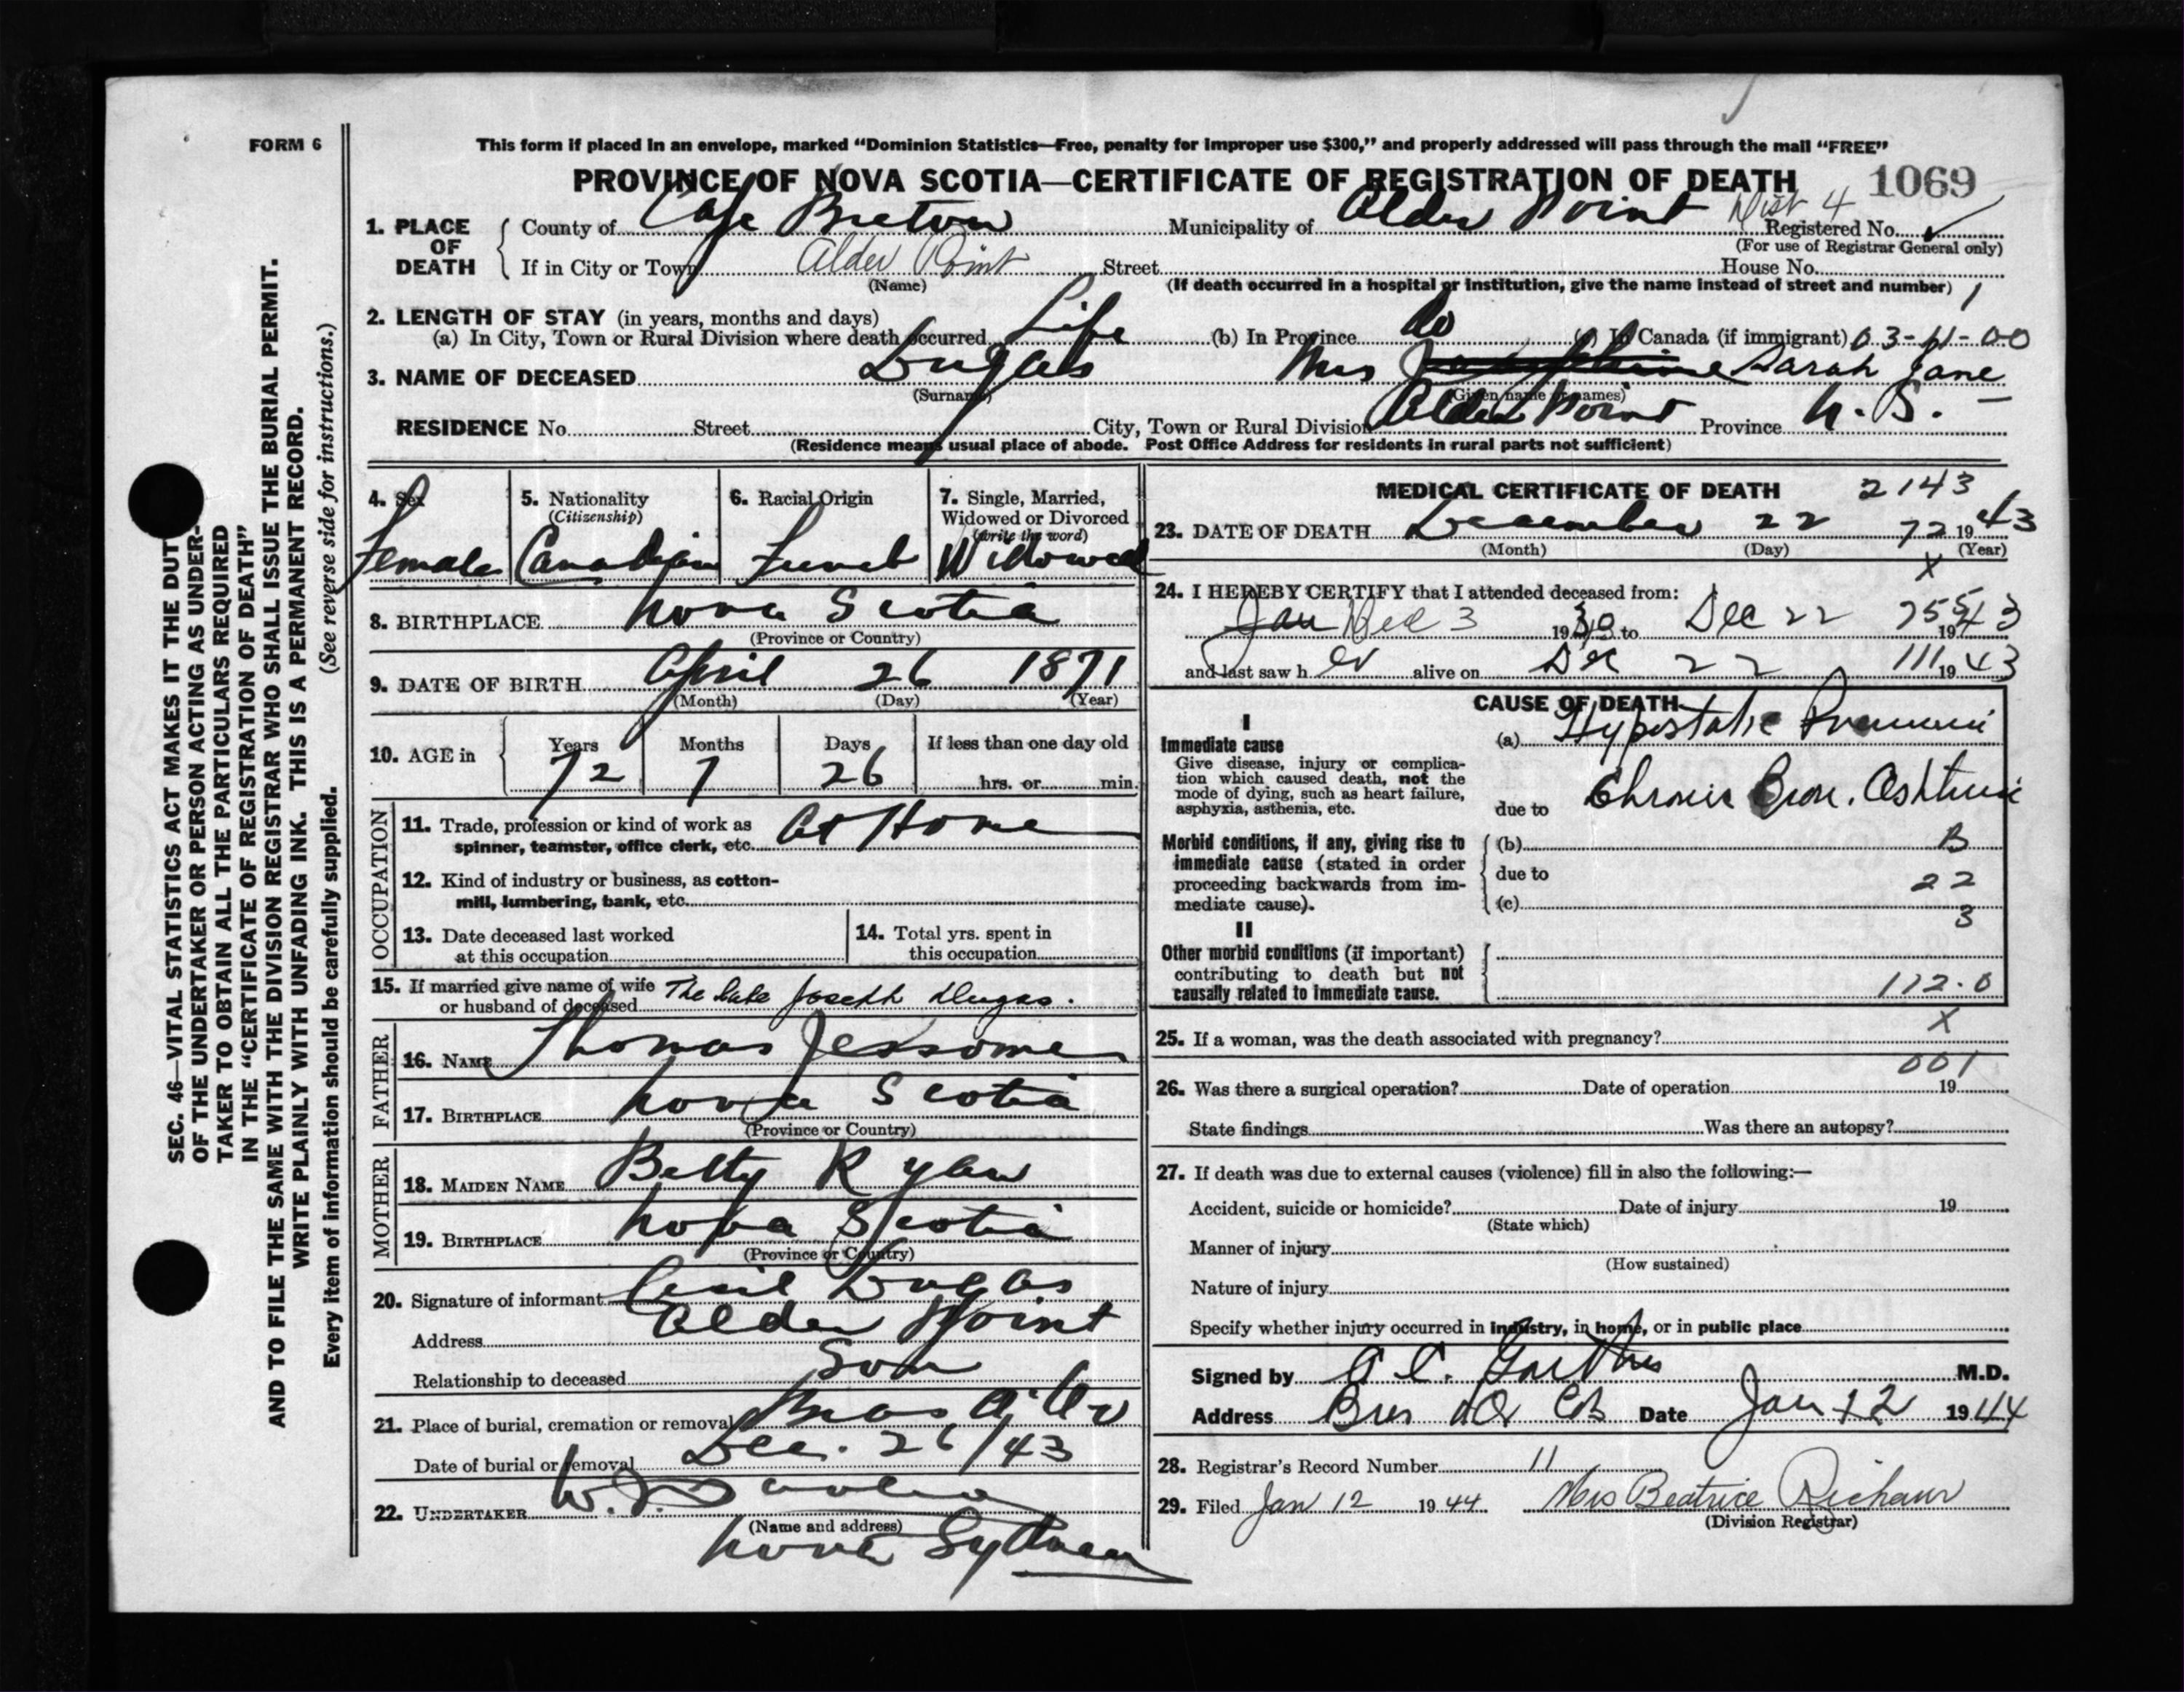 FORM 6
This form if placed in an envelope, marked “Dominion Statistics—Free, penalty for improper use $300,” and properly addressed will pass through the mail “FREE”
PROVINCE OF NOVA SCOTIA—CERTIFICATE OF REGISTRATION OF DEATH 1069
1. PLACE OF DEATH County of Cape Breton Municipality of Alder Point Dist 4 Registered No.
(For use of Registrar General only)
If in City or Town Alder Point Street House No.
(Name) (If death occurred in a hospital or institution, give the name instead of street and number) 1
2. LENGTH OF STAY (in years, months and days)
(a) In City, Town or Rural Division where death occurred Life (b) In Province do (c) In Canada (if immigrant) 03-11-00
3. NAME OF DECEASED Dugas Mrs Sarah Jane
(Surname) (Given name or names)
RESIDENCE No. Street City, Town or Rural Division Alder Point Province N.S. —
(Residence means usual place of abode. Post Office Address for residents in rural parts not sufficient)
4. Sex Female
5. Nationality (Citizenship) Canadian
6. Racial Origin French
7. Single, Married, Widowed or Divorced (write the word) Widowed
8. BIRTHPLACE Nova Scotia
(Province or Country)
9. DATE OF BIRTH April 26 1871
(Month) (Day) (Year)
10. AGE in Years 72 Months 7 Days 26 If less than one day old
hrs. or min.
OCCUPATION
11. Trade, profession or kind of work as spinner, teamster, office clerk, etc. At Home
12. Kind of industry or business, as cotton-mill, lumbering, bank, etc.
13. Date deceased last worked at this occupation
14. Total yrs. spent in this occupation
15. If married give name of wife or husband of deceased The late Joseph Dugas.
FATHER
16. NAME Thomas Jessome
17. BIRTHPLACE Nova Scotia
(Province or Country)
MOTHER
18. MAIDEN NAME Betty Ryan
19. BIRTHPLACE Nova Scotia
(Province or Country)
20. Signature of informant Cecil Dugas
Address Alder Point
Relationship to deceased Son
21. Place of burial, cremation or removal Bras d'Or
Date of burial or removal Dec. 26/43
22. UNDERTAKER W.J.
(Name and address)
Sydney
MEDICAL CERTIFICATE OF DEATH 2143
23. DATE OF DEATH December 22 72 1943
(Month) (Day) (Year)
X
24. I HEREBY CERTIFY that I attended deceased from:
Jan Dec 3 19 to Dec 22 755 1943
and last saw h er alive on Dec 22 111 1943
CAUSE OF DEATH
I
Immediate cause
Give disease, injury or complication which caused death, not the mode of dying, such as heart failure, asphyxia, asthenia, etc.
(a) Hypostatic
due to Chronic Bron.
Morbid conditions, if any, giving rise to immediate cause (stated in order proceeding backwards from immediate cause).
(b) B
due to 22
(c) 3
II
Other morbid conditions (if important) contributing to death but not causally related to immediate cause.
112.0
X
25. If a woman, was the death associated with pregnancy?
001
26. Was there a surgical operation? Date of operation 19
State findings Was there an autopsy?
27. If death was due to external causes (violence) fill in also the following:—
Accident, suicide or homicide? Date of injury 19
(State which)
Manner of injury
(How sustained)
Nature of injury
Specify whether injury occurred in industry, in home, or in public place
Signed by A C. M.D.
Address Bras d'Or CB Date Jan 12 1944
28. Registrar's Record Number 11
29. Filed Jan 12 1944 Mrs Beatrice
(Division Registrar)
SEC. 46—VITAL STATISTICS ACT MAKES IT THE DUTY
OF THE UNDERTAKER OR PERSON ACTING AS UNDER-
TAKER TO OBTAIN ALL THE PARTICULARS REQUIRED
IN THE “CERTIFICATE OF REGISTRATION OF DEATH”
AND TO FILE THE SAME WITH THE DIVISION REGISTRAR WHO SHALL ISSUE THE BURIAL PERMIT.
WRITE PLAINLY WITH UNFADING INK. THIS IS A PERMANENT RECORD.
Every item of information should be carefully supplied. (See reverse side for instructions.)